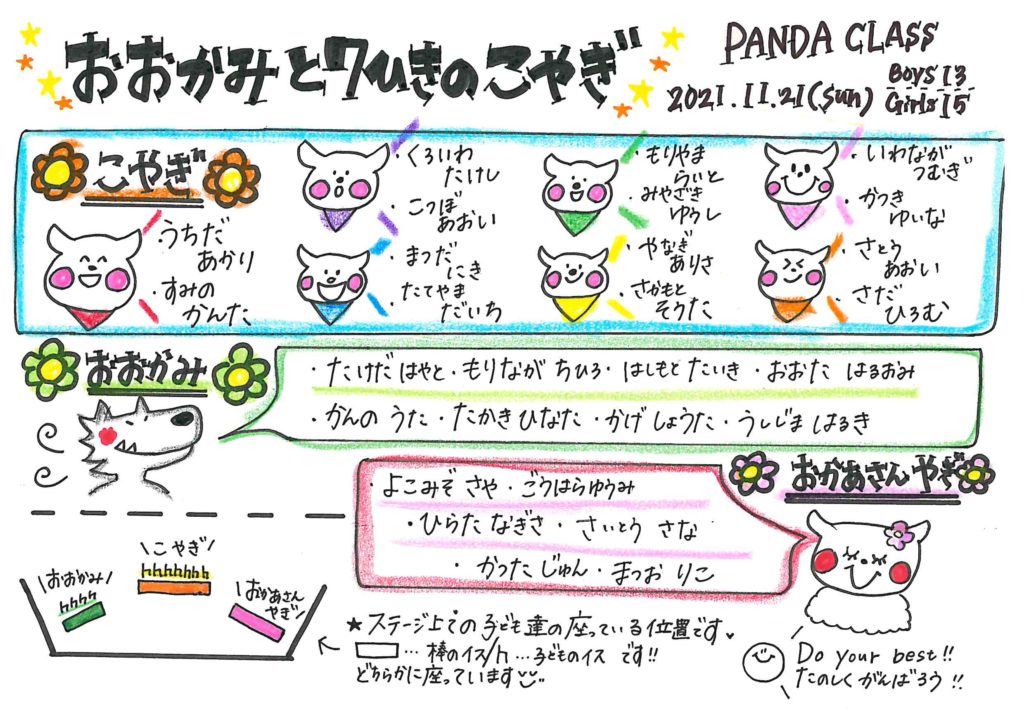 おおかみと7ひきのこやぎ
PANDA CLASS
2021.11.21(sun)
Boys 13
Girls 15
こやぎ
・うちだ
あかり
・すみの
かんた
・くろいわ
たけし
・こつぼ
あおい
・まつだ
にき
・たてやま
だいち
・もりやま
らいと
・みやざき
ゆうし
・やなぎ
ありさ
・さかもと
そうた
・いわなが
つむぎ
・かつき
ゆいな
・さとう
あおい
・さだ
ひろむ
おおかみ
・たけだ はやと・もりなが ちひろ・はしもと たいき・おおた はるおみ
・かんの うた・たかき ひなた・かげ しょうた・うしじま はるき
おかあさんやぎ
・よこみぞ さや・ごうはらゆうみ
・ひらた なぎさ・さいとう さな
・かった じゅん・まつお りこ
\こやぎ/
\おおかみ/
hhhh
hhhhhhh
\おかあさん
やぎ/
★ステージ上での子ども達の座っている位置です
…棒のイス/h…子どものイス です!!
どちらかに座っています
Do your best!!
たのしくがんばろう!!